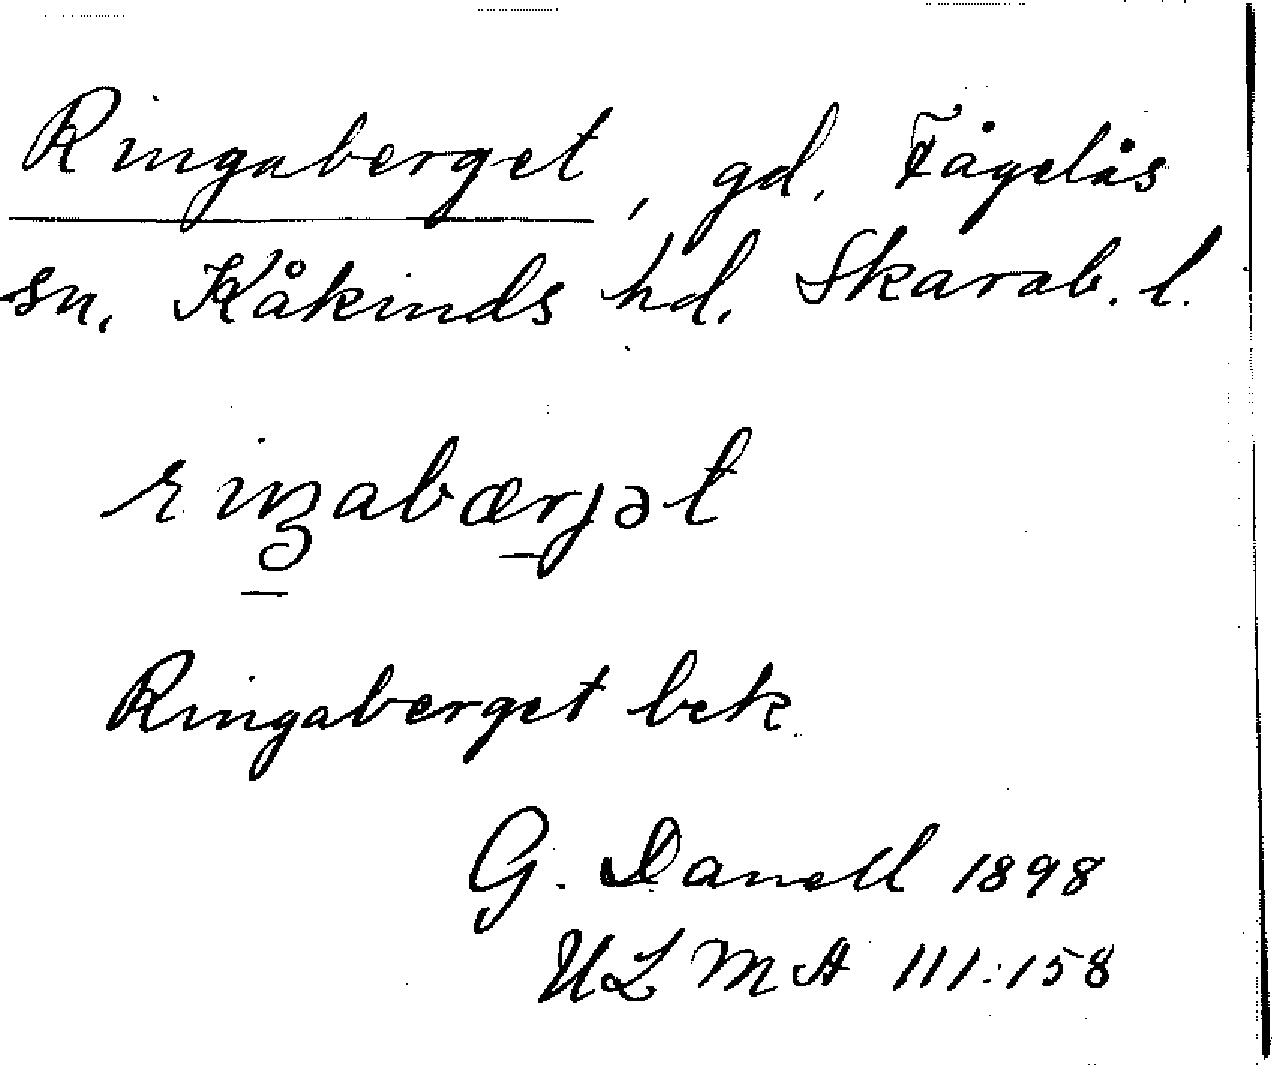 Ringaberget, gd. Fågelås
sn. Kåkinds hd. Skarab. l.
Ringaberget bek.
G. Danell 1898
ULMA 111:158